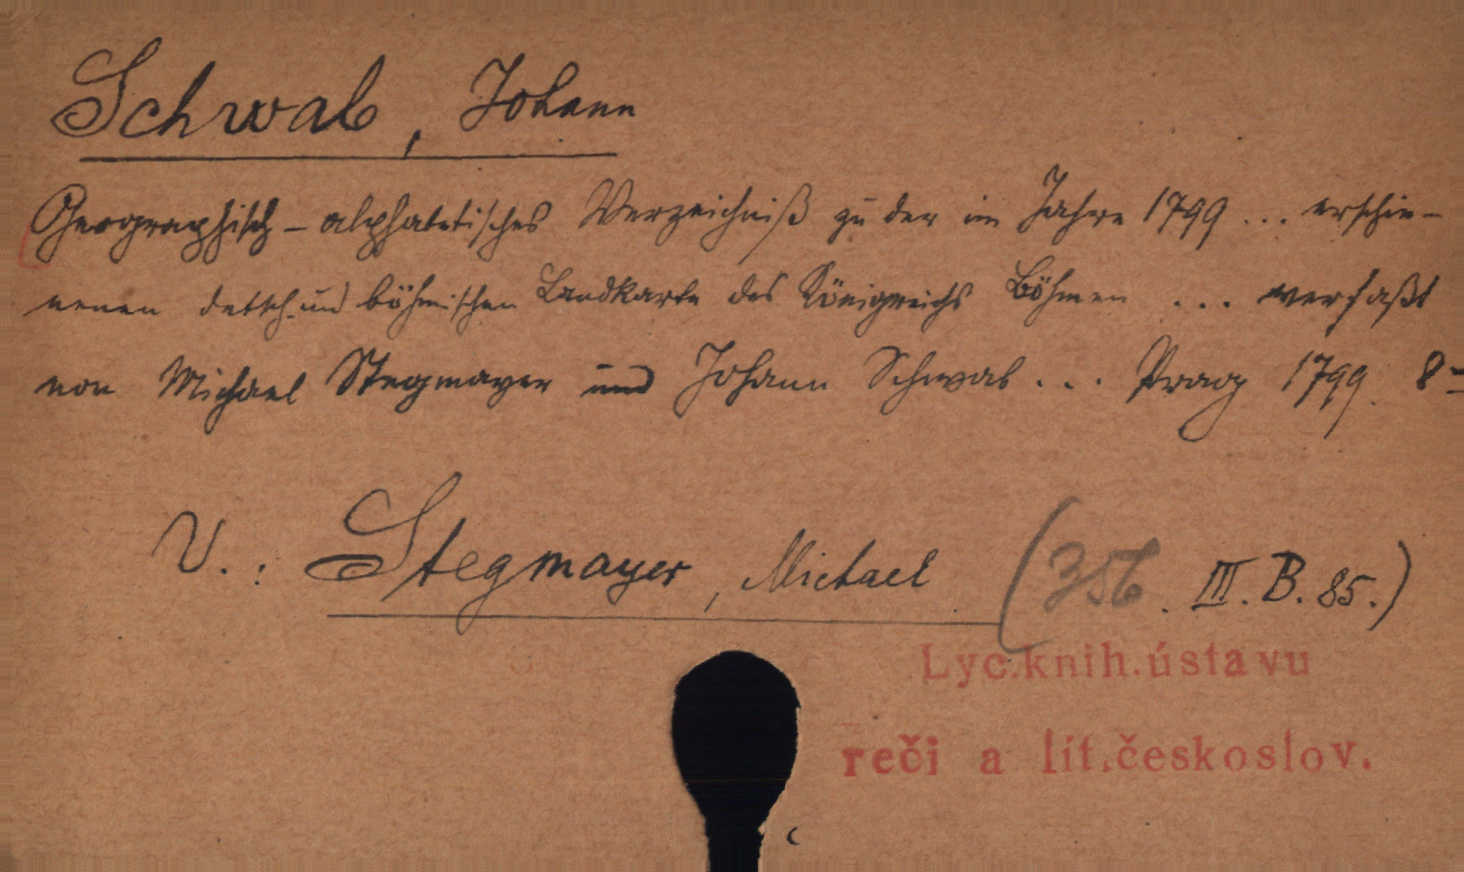 Schwab, Johann
Geographisch-alphabetisches Verzeichniß zu der im Jahre 1799 ... erschie-
nenen detsch. und böhmischen Landkarte des Königreichs Böhmen ... verfaßt
von Michael Stegmayer und Johann Schwab ... Prag 1799. 8-
V.: Stegmayer, Michael (356. III. B. 85.)
Lyc.knih.ústavu
reči a lit.českoslov.